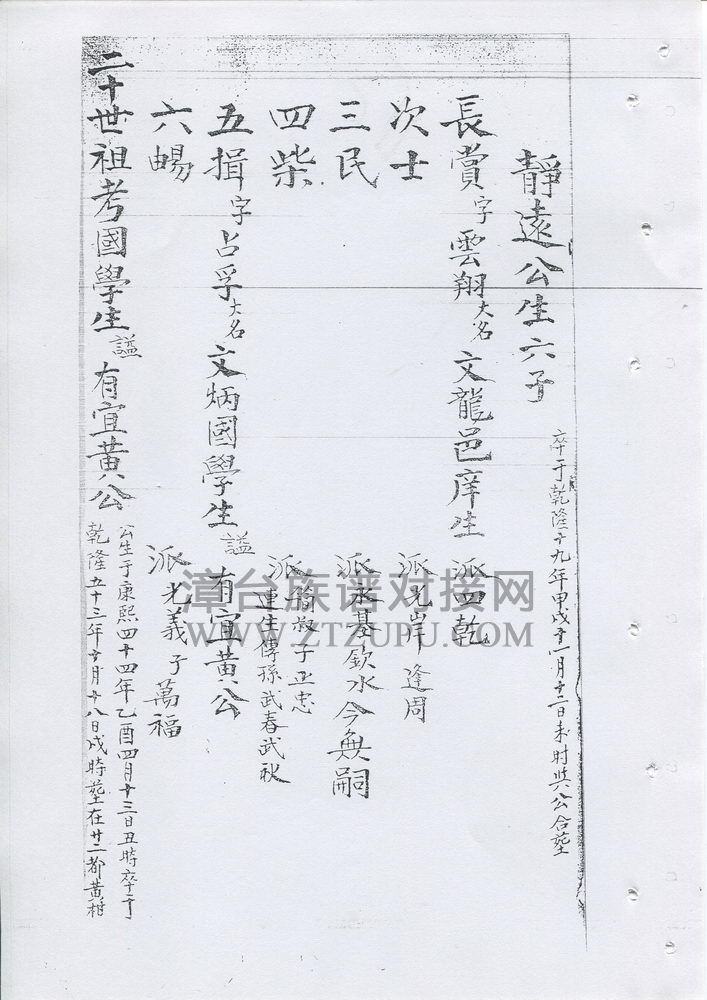 卒于乾隆十九年甲戌十一月十二日未时與公合墓
靜遠公生六子
長賞字雲翔大名文龍邑庠生 派四乾
次士 派光岸 逢周
三民 派永基欽水今無嗣
四柴 派簡叔子正忠
連生傳孫武春武秋
五揖字占孚大名文炳國學生謚有宜黃公
六暘 派光義子萬福
二十世祖考國學生謚有宜黃公
公生于康熙四十四年乙酉四月十三日丑時卒于
乾隆五十三年十月十八日戌時墓在廿二都黃柑
漳台族谱对接网
WWW.ZTZUPU.COM